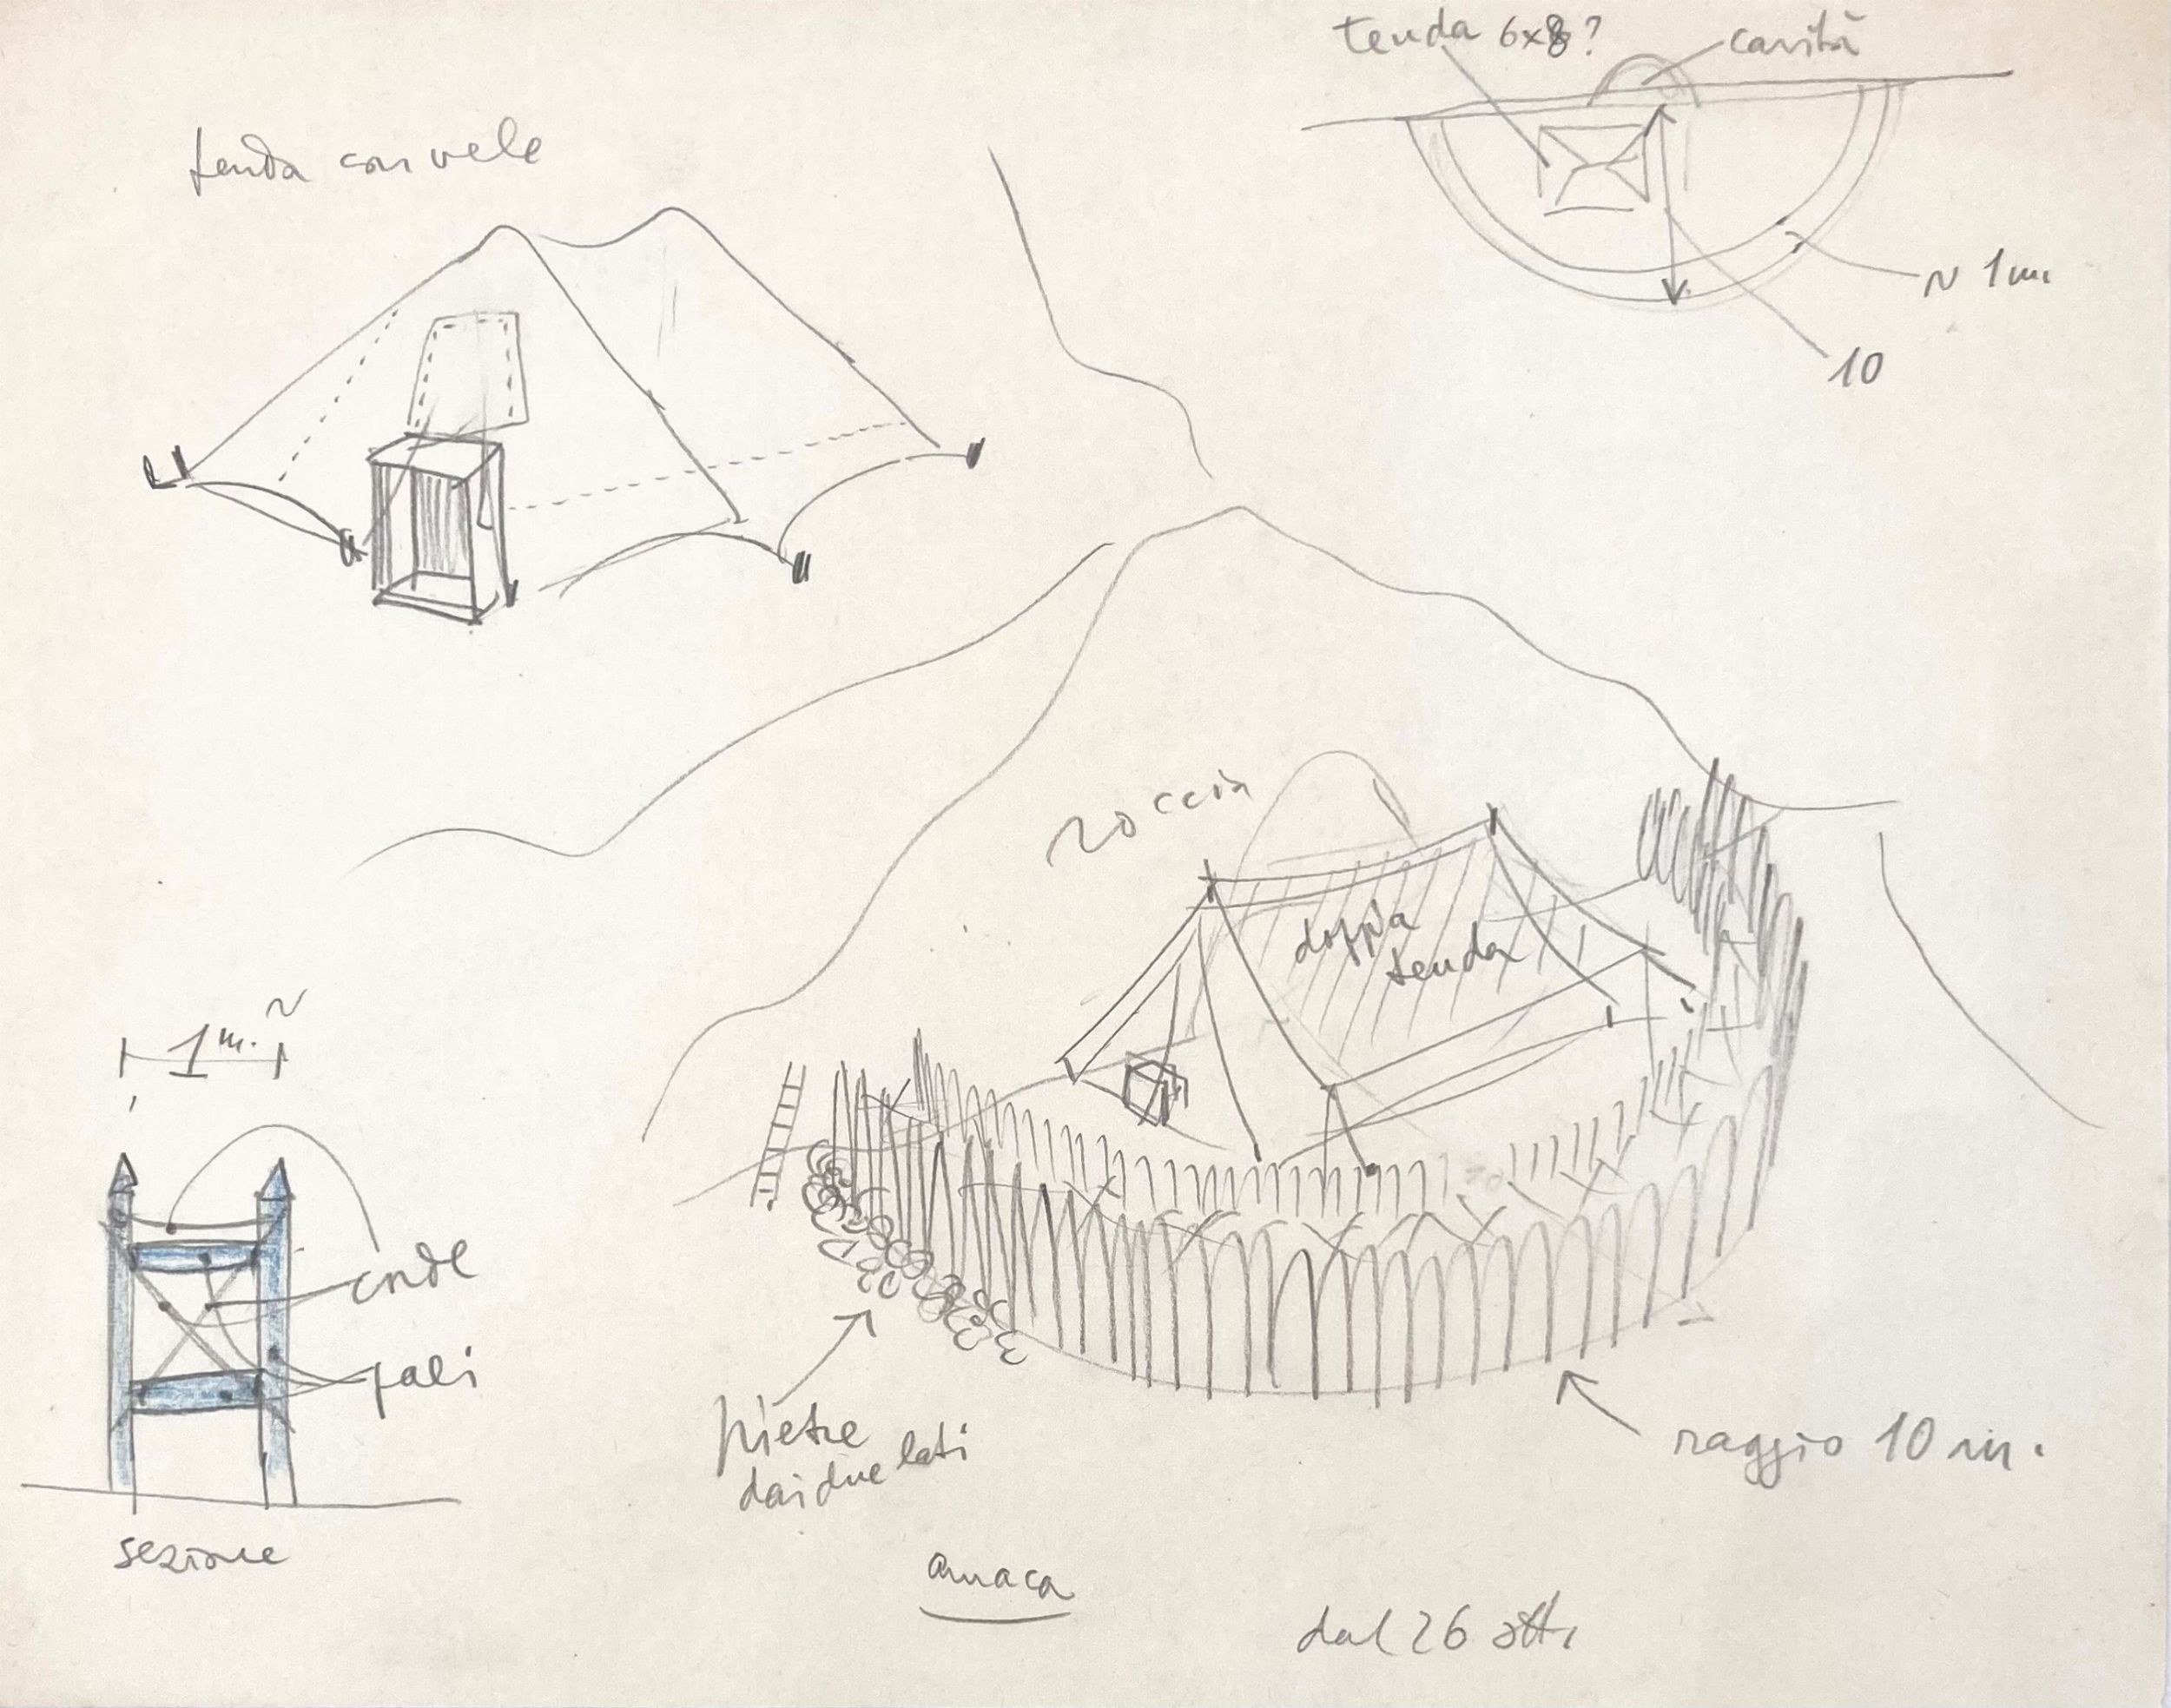 tenda 6x8?
cavità
tenda con vele
~ 1 m.
10
roccia
doppia
tenda
1 m. ~
corde
pali
pietre
dai due lati
raggio 10 m.
sezione
amaca
dal 26 ott.